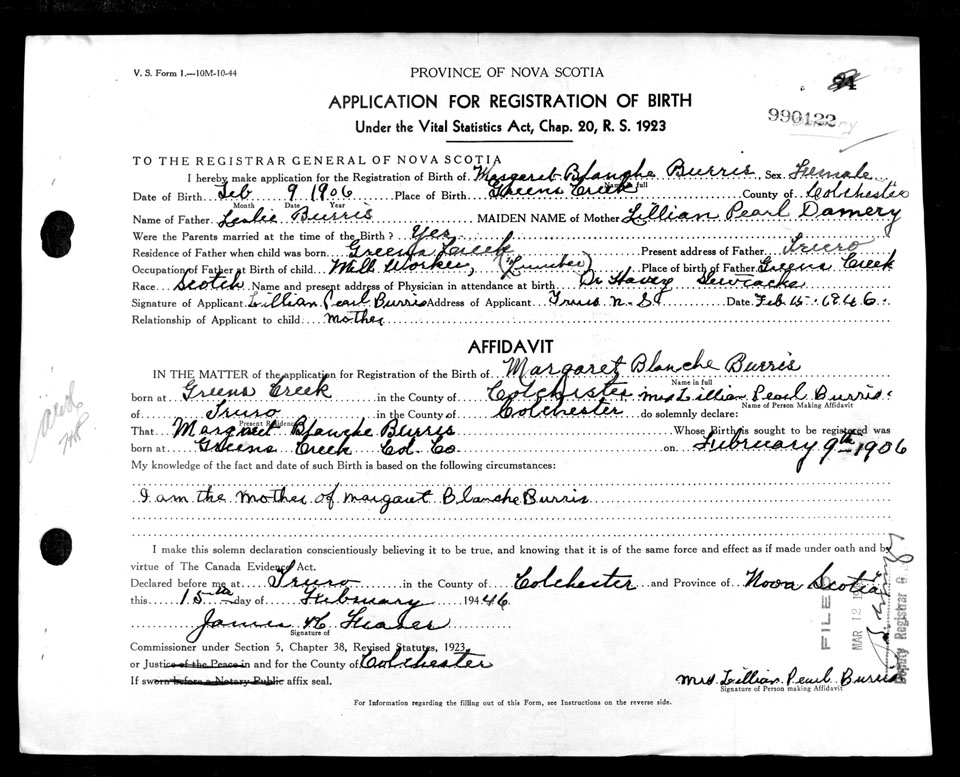 V. S. Form 1.—10M-10-44
PROVINCE OF NOVA SCOTIA
APPLICATION FOR REGISTRATION OF BIRTH
990122
Under the Vital Statistics Act, Chap. 20, R. S. 1923
TO THE REGISTRAR GENERAL OF NOVA SCOTIA
I hereby make application for the Registration of Birth of Margaret Blanche Burris, Sex Female
Name in full
Date of Birth Feb 9 1906 Place of Birth Greens Creek County of Colchester
Month Date Year
Name of Father Leslie Burris MAIDEN NAME of Mother Lillian Pearl Damery
Were the Parents married at the time of the Birth? Yes
Residence of Father when child was born Greens Creek Present address of Father Truro
Occupation of Father at Birth of child Mill Worker, (Lumber) Place of birth of Father Greens Creek
Race Scotch Name and present address of Physician in attendance at birth Dr Havey Sewiacke
Signature of Applicant Lillian Pearl Burris Address of Applicant Truro N.S. Date Feb 15 1946
Relationship of Applicant to child mother
AFFIDAVIT
IN THE MATTER of the application for Registration of the Birth of Margaret Blanche Burris
Name in full
born at Greens Creek in the County of Colchester Mrs Lillian Pearl Burris
Name of Person Making Affidavit
of Truro in the County of Colchester do solemnly declare:
Present Residence
That Margaret Blanche Burris Whose Birth is sought to be registered was
born at Greens Creek Col. Co. on February 9th 1906
My knowledge of the fact and date of such Birth is based on the following circumstances:
I am the mother of Margaret Blanche Burris
I make this solemn declaration conscientiously believing it to be true, and knowing that it is of the same force and effect as if made under oath and by
virtue of The Canada Evidence Act.
Declared before me at Truro in the County of Colchester and Province of Nova Scotia
this 15th day of February 194 46
James H Fraser
Signature of
Commissioner under Section 5, Chapter 38, Revised Statutes, 1923
or Justice of the Peace in and for the County of Colchester
If sworn before a Notary Public affix seal.
Mrs. Lillian Pearl Burris
Signature of Person making Affidavit
For Information regarding the filling out of this Form, see Instructions on the reverse side.
FILED
MAR 12
Deputy Registrar G